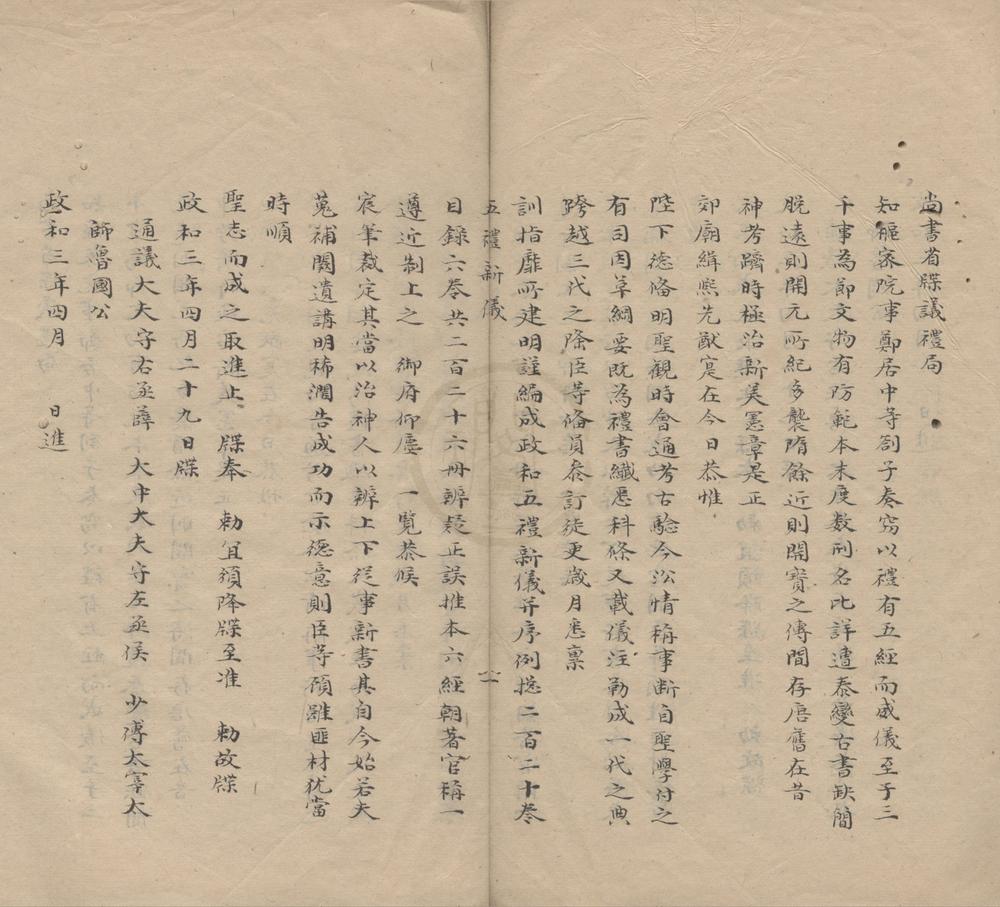 尚書省牒議禮局
知樞密院事鄭居中等劄子奏竊以禮有五經而威儀至于三
千事為節文物有防範本末度數刑名比詳遭秦變古書缺簡
脱遠則開元所紀多襲隋餘近則開寶之傳間存唐舊在昔
神考躋時極治新美憲章是正
郊廟緝熙先猷寔在今日恭惟
陛下德備明聖觀時會通考古驗今沿情稱事斷自聖學付之
有司因革綱要既為禮書纖悉科條又載儀注勒成一代之典
跨越三代之隆臣等備員叅訂徒更歲月悉禀
訓指靡所建明謹編成政和五禮新儀并序例揔二百二十卷
五禮新儀 一
目録六卷共二百二十六冊辨疑正誤推本六經朝著官稱一
遵近制上之 御府仰塵 一覽恭候
宸筆裁定其當以治神人以辨上下從事新書其自今始若夫
蒐補闕遺講明稀濶告成功而示德意則臣等顧雖匪材犹當
時順
聖志而成之取進止 牒奉 勅宜頒降牒至准 勅故牒
政和三年四月二十九日牒
通議大夫守右丞薛 大中大夫守左丞侯 少傅太宰太
師魯國公
政和三年四月 日進